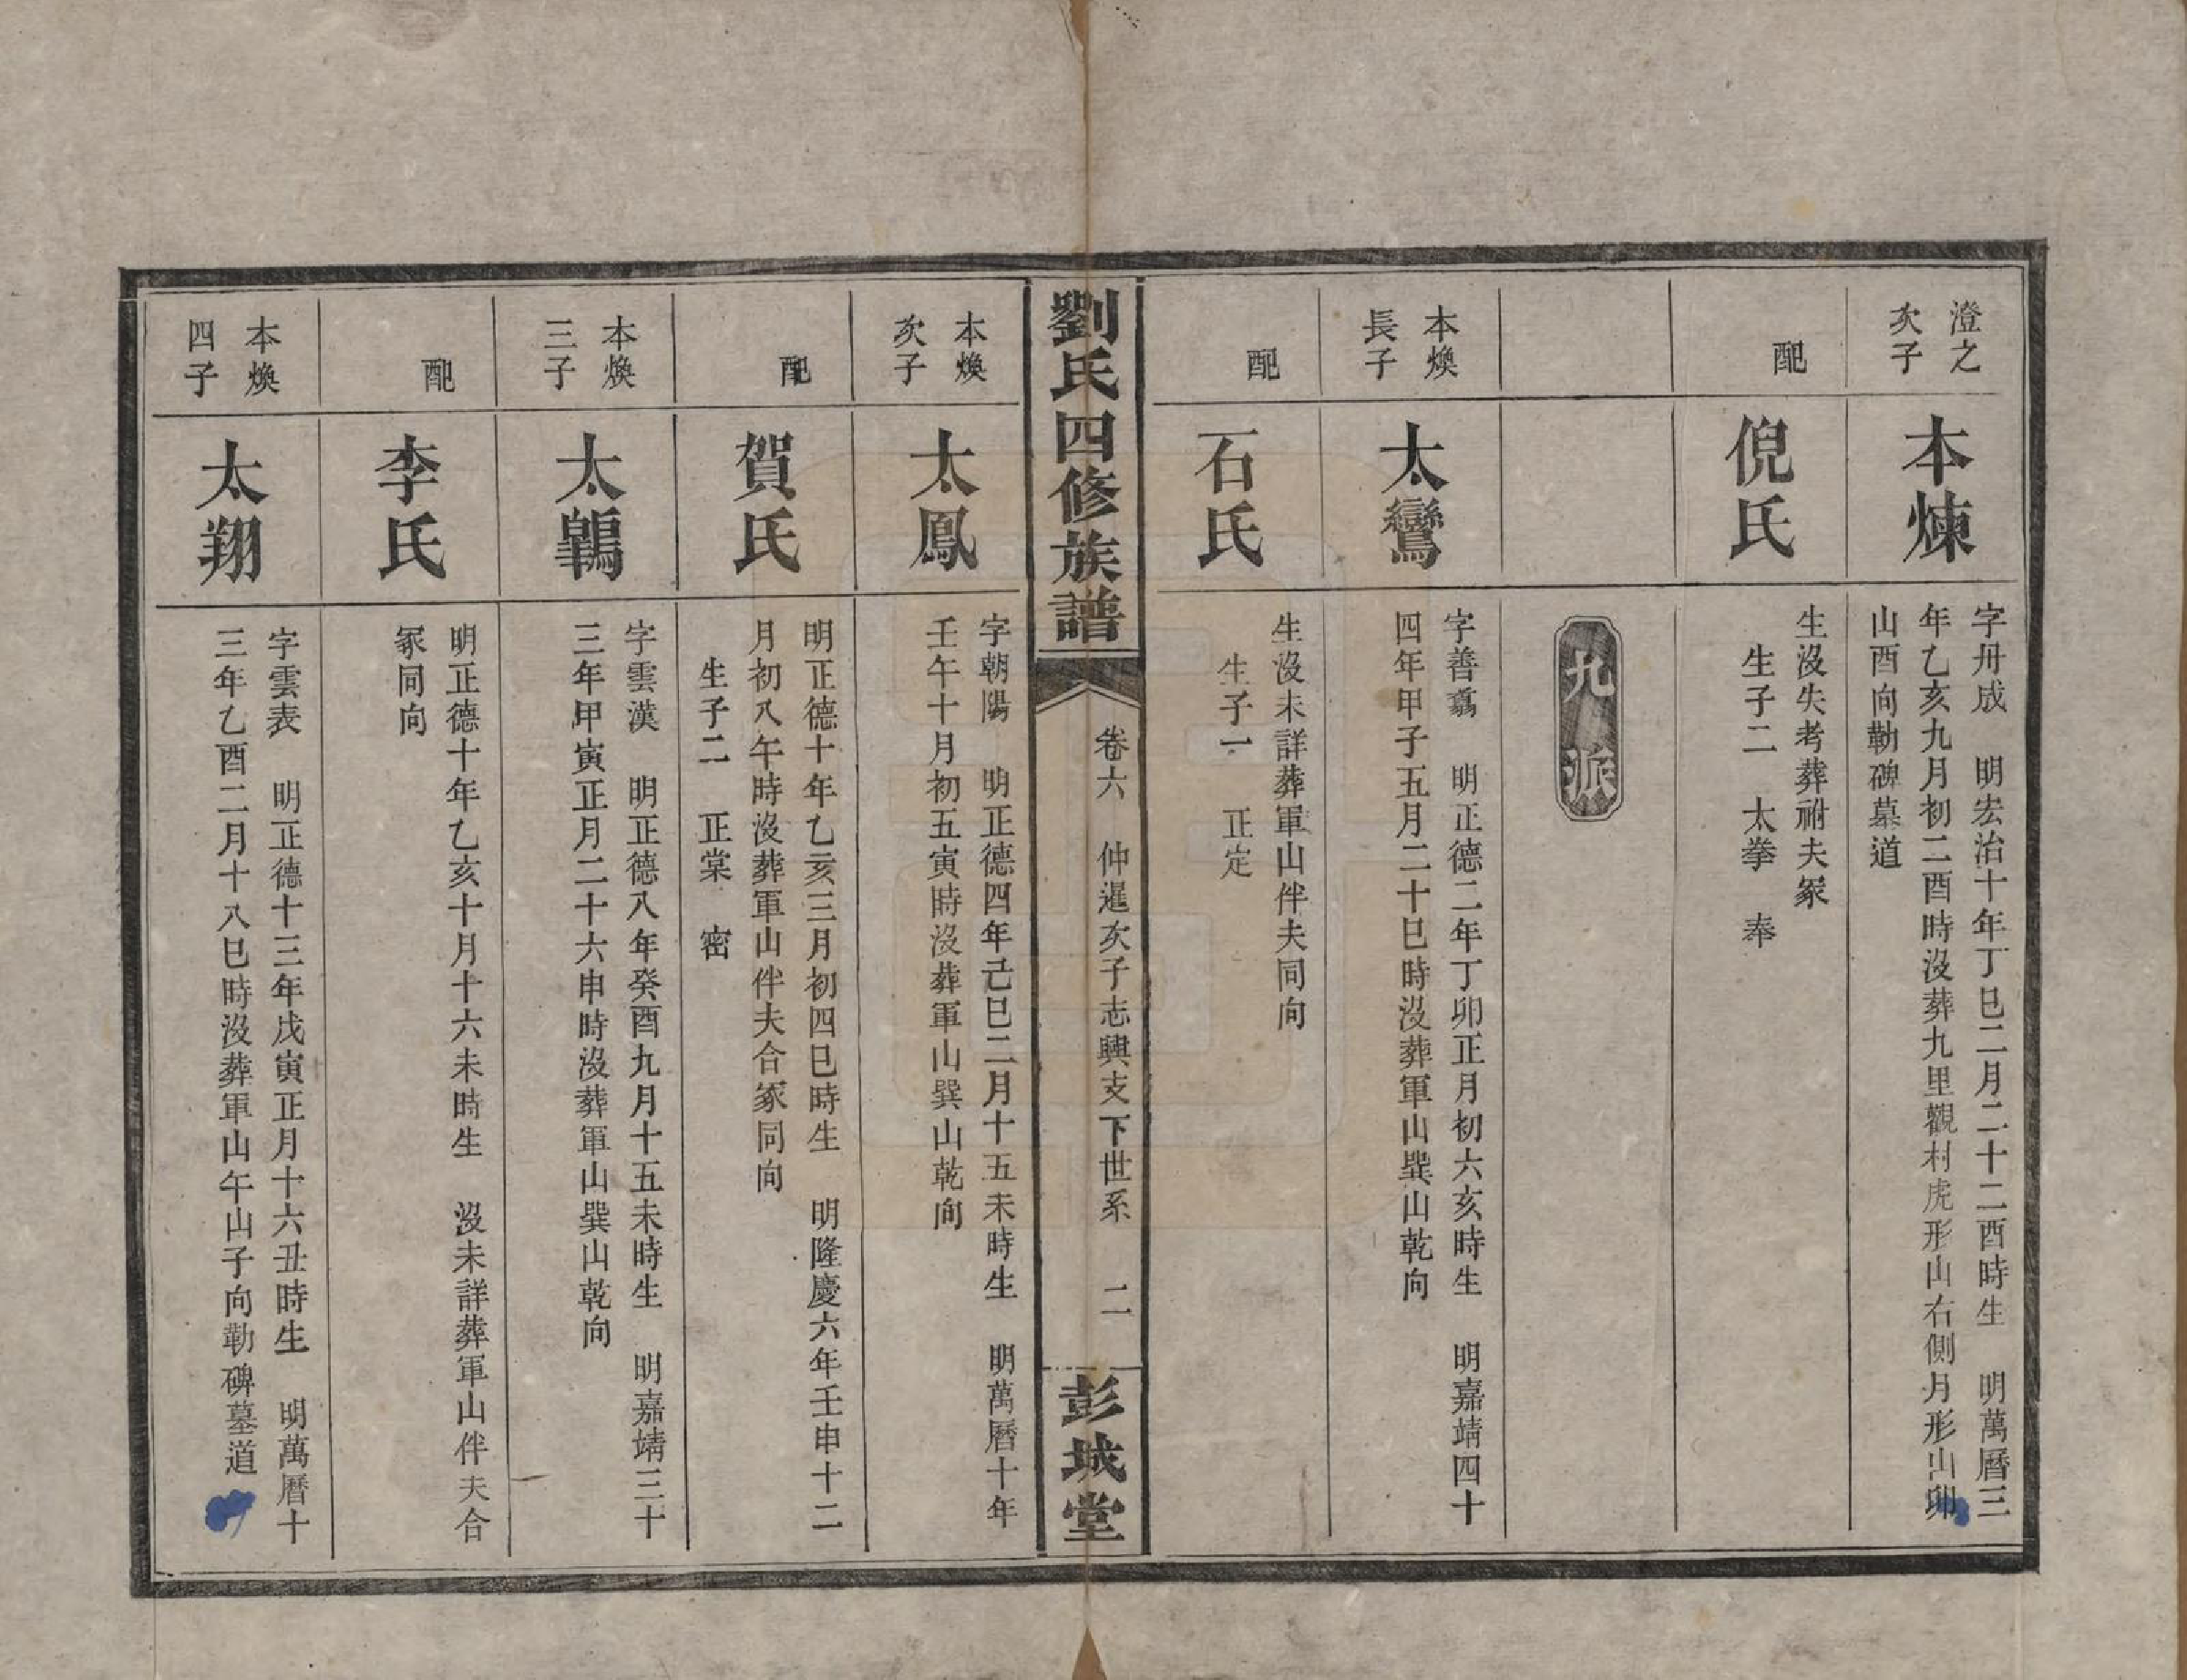 澄之
次子
本煉
字卅成　明宏治十年丁巳二月二十二酉時生　明萬曆三
年乙亥九月初二酉時沒葬九里觀村虎形山右側月形山卯
山酉向勒碑墓道
配
倪氏
生沒失考葬祔夫冢
生子二　太拳　奉
九派
本煥
長子
太鸞
字善翥　明正德二年丁卯正月初六亥時生　明嘉靖四十
四年甲子五月二十巳時沒葬軍山巽山乾向
配
石氏
生沒未詳葬軍山伴夫同向
生子一　正定
劉氏四修族譜
卷六　仲暹次子志興支下世系　二
彭城堂
本煥
次子
太鳳
字朝陽　明正德四年己巳二月十五未時生　明萬曆十年
壬午十月初五寅時沒葬軍山巽山乾向
配
賀氏
明正德十年乙亥三月初四巳時生　明隆慶六年壬申十二
月初八午時沒葬軍山伴夫合冢同向
生子二　正棠　密
本煥
三子
太鶾
字雲漢　明正德八年癸酉九月十五未時生　明嘉靖三十
三年甲寅正月二十六申時沒葬軍山巽山乾向
配
李氏
明正德十年乙亥十月十六未時生　沒未詳葬軍山伴夫合
冢同向
本煥
四子
太翔
字雲表　明正德十三年戊寅正月十六丑時生　明萬曆十
三年乙酉二月十八巳時沒葬軍山午山子向勒碑墓道